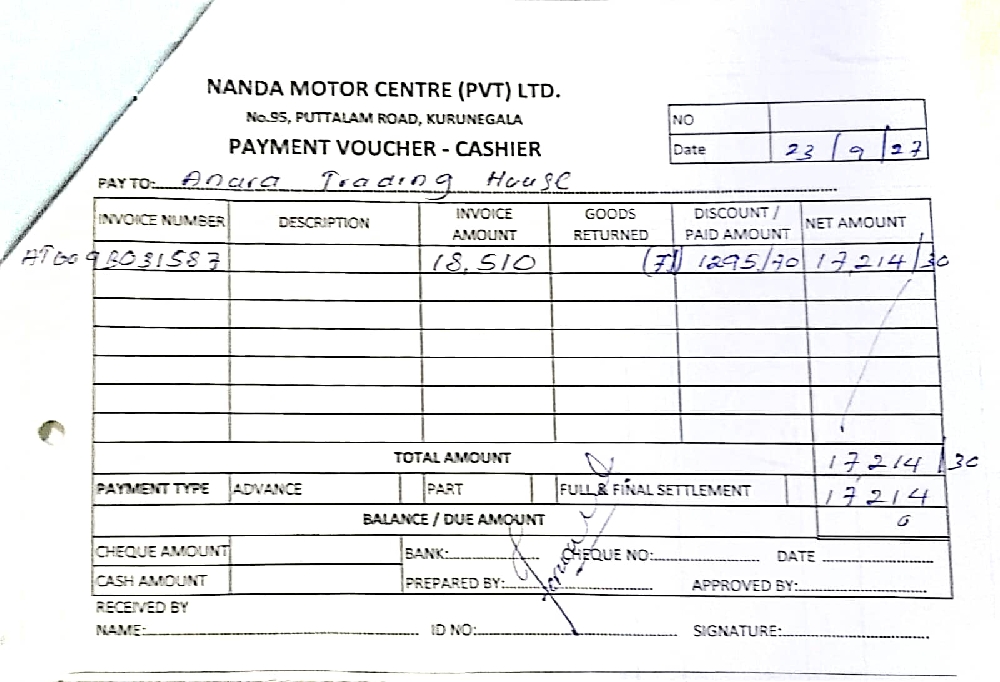 NANDA MOTOR CENTRE (PVT) LTD.
No.95, PUTTALAM ROAD, KURUNEGALA
PAYMENT VOUCHER - CASHIER
NO
Date 23/9/27
PAY TO: Anara Trading House
INVOICE NUMBER DESCRIPTION INVOICE AMOUNT GOODS RETURNED DISCOUNT / PAID AMOUNT NET AMOUNT
AT009B031587 18,510 (7) 1295/70 17,214/30
TOTAL AMOUNT 17214/30
PAYMENT TYPE ADVANCE PART FULL & FINAL SETTLEMENT 17214
BALANCE / DUE AMOUNT 0
CHEQUE AMOUNT BANK: CHEQUE NO: DATE
CASH AMOUNT PREPARED BY: APPROVED BY:
RECEIVED BY
NAME: ID NO: SIGNATURE: